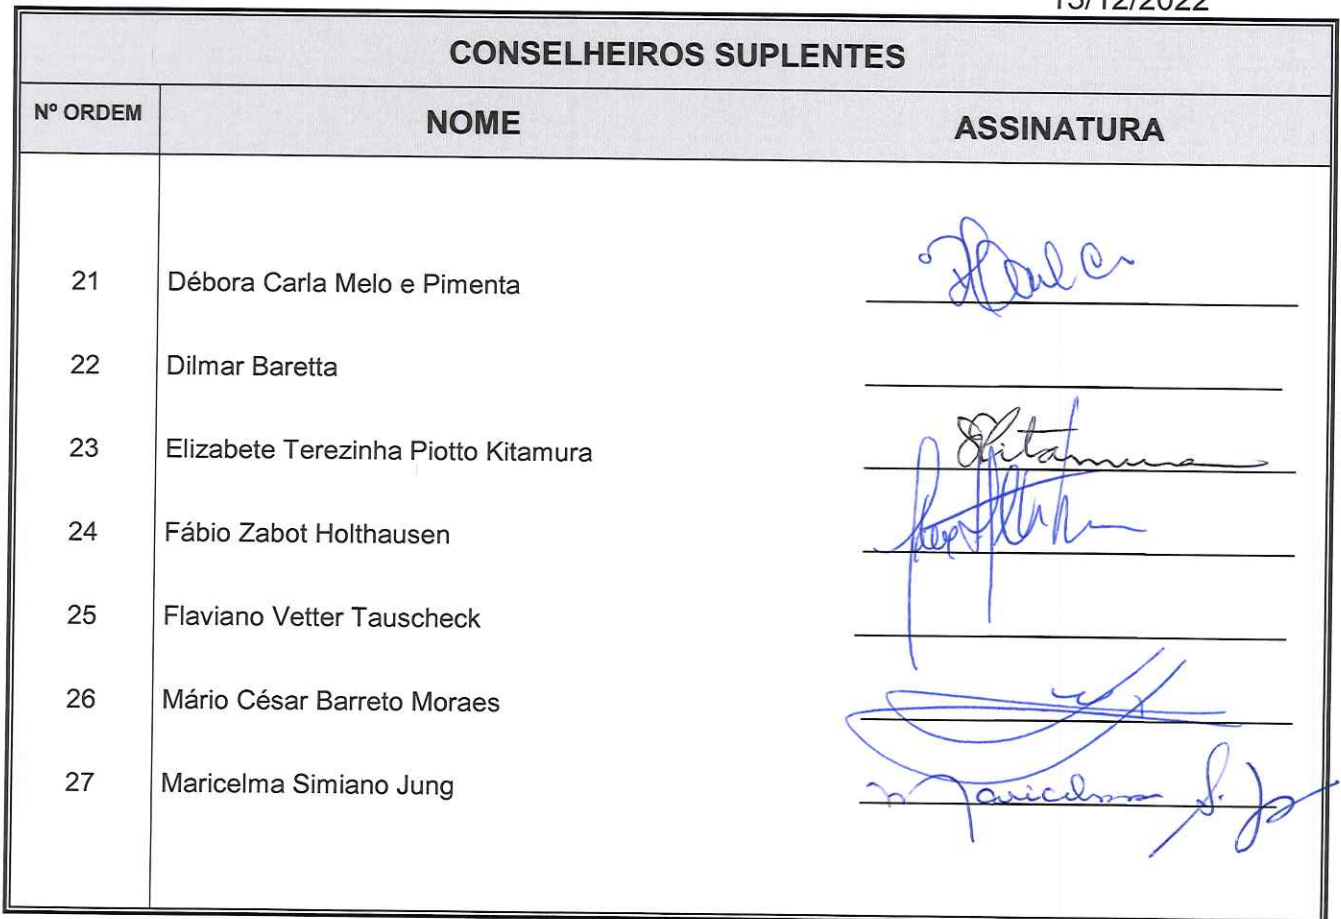 13/12/2022
CONSELHEIROS SUPLENTES
Nº ORDEM NOME ASSINATURA
21 Débora Carla Melo e Pimenta
22 Dilmar Baretta
23 Elizabete Terezinha Piotto Kitamura Kitamura
24 Fábio Zabot Holthausen
25 Flaviano Vetter Tauscheck
26 Mário César Barreto Moraes
27 Maricelma Simiano Jung Maricelma S. Jung